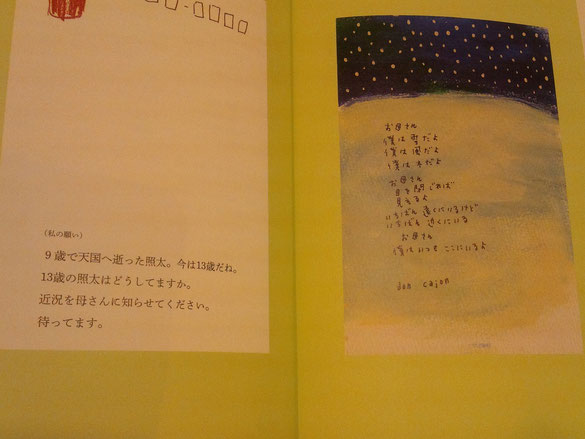 (私の願い)
9歳で天国へ逝った照太。今は13歳だね。
13歳の照太はどうしてますか。
近況を母さんに知らせてください。
待ってます。
お母さん
僕は雪だよ
僕は風だよ
僕は
お母さん
目を閉じれば
見えるよ
いちばん遠くにいるけど
いちばん近くにいる
お母さん
僕はいつもここにいるよ
don cajon